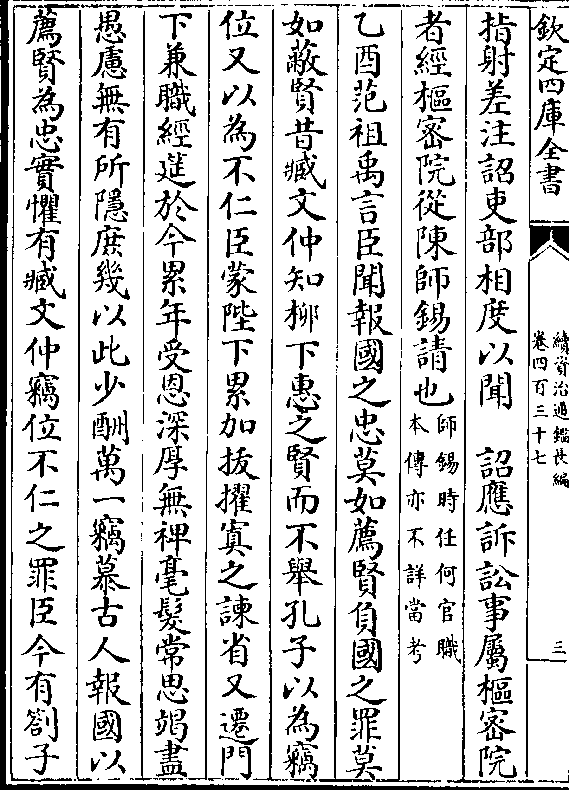 欽定四庫全書
續資治通鑑長編
卷四百三十七
三
指射差注詔吏部相度以聞　詔應訴訟事屬樞密院
者經樞密院從陳師錫請也
師錫時任何官職
本傳亦不詳當考
乙酉范祖禹言臣聞報國之忠莫如薦賢負國之罪莫
如蔽賢昔臧文仲知柳下惠之賢而不舉孔子以為竊
位又以為不仁臣蒙陛下累加拔擢寘之諫省又遷門
下兼職經筵於今累年受恩深厚無裨毫髮常思竭盡
愚慮無有所隱庶幾以此少酬萬一竊慕古人報國以
薦賢為忠實懼有臧文仲竊位不仁之罪臣今有劄子